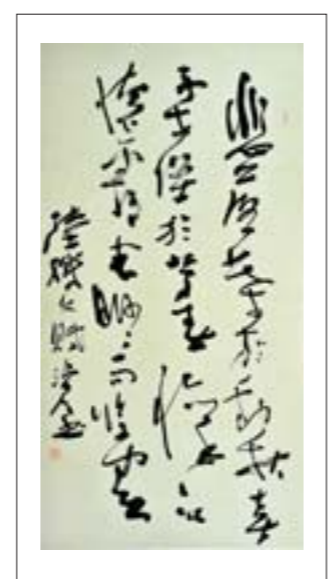 悲落葉於勁秋喜
柔條於芳春心懍〻以
懷霜志眇〻而臨雲
陸機文賦